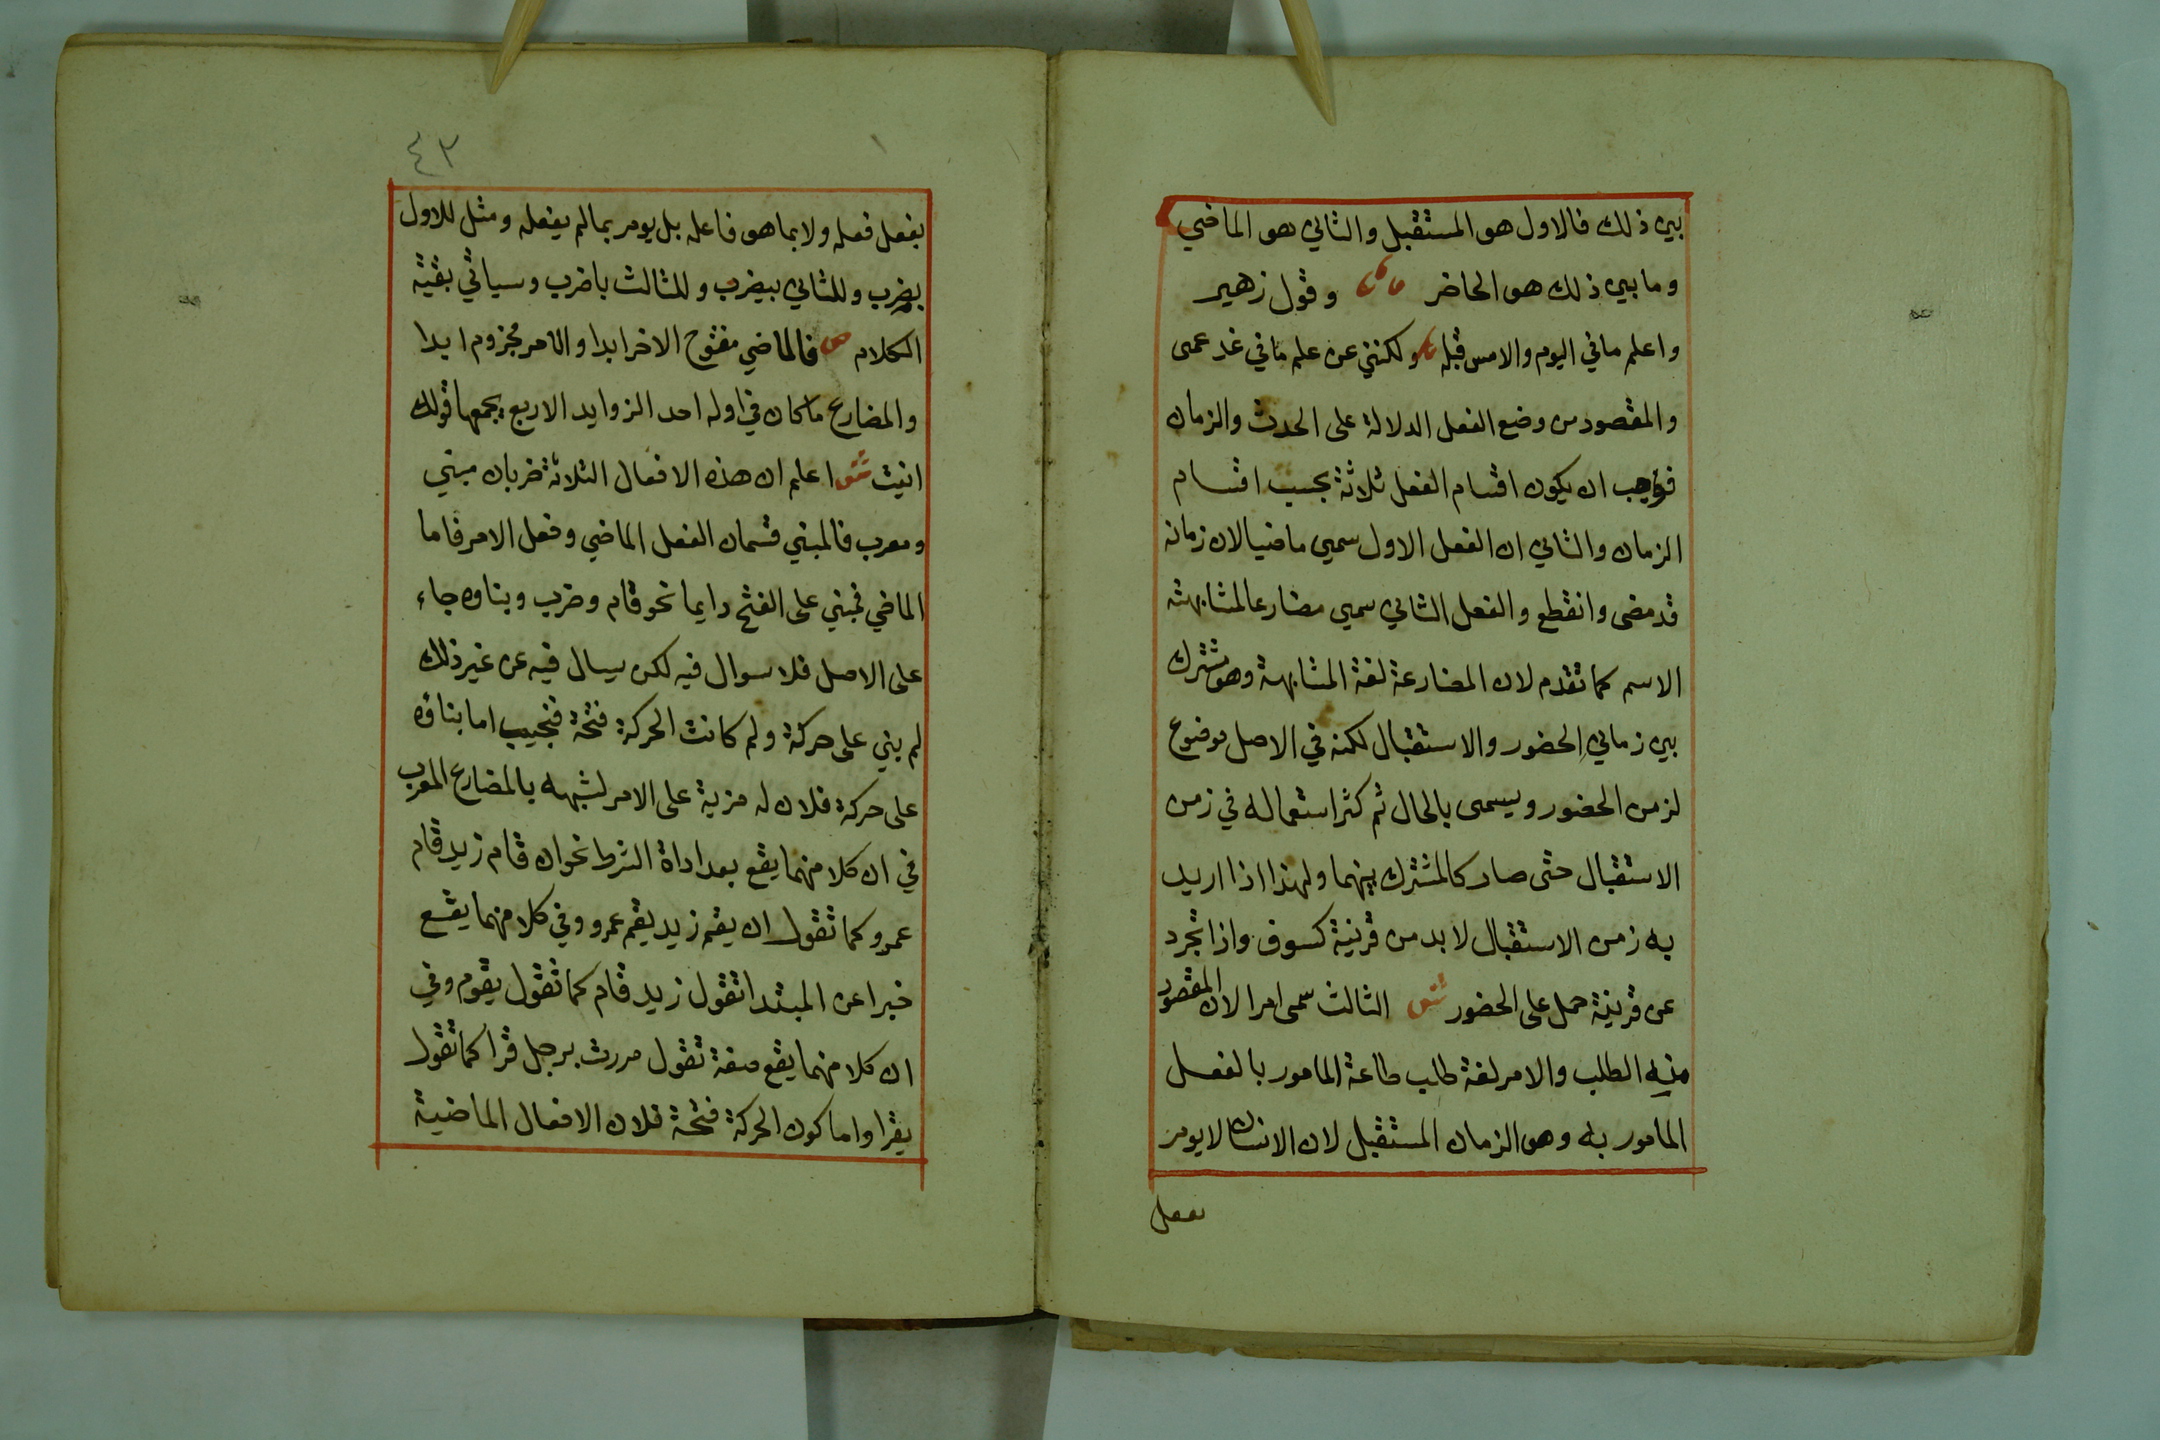 بين ذلك فالاول هو المستقبل والثاني هو الماضي
وما بين ذلك هو الحاضر وقول زهير
واعلم ما في اليوم والامس قبله ولكنني عن علم ما في غد عمى
والمقصود من وضع الفعل الدلالة على الحدث والزمان
فوجب ان يكون اقسام الفعل ثلاثة بحسب اقسام
الزمان والثاني ان الفعل الاول سمي ماضيا لان زمانه
قد مضى وانقطع والفعل الثاني سمي مضارعا لمشابهته
الاسم كما تقدم لان المضارعة لغة المشابهة وهو مشترك
بين زماني الحضور والاستقبال لكنه في الاصل موضوع
لزمن الحضور ويسمى بالحال ثم كثر استعماله في زمن
الاستقبال حتى صار كالمشترك بينهما ولهذا اذا اريد
به زمن الاستقبال لا بد من قرينة كسوف واذا تجرد
عن قرينة حمل على الحضور ش الثالث سمى امرا لان المقصود
منه الطلب والامر لغة طلب طاعة المامور بالفعل
المامور به وهو الزمان المستقبل لان الانسان لا يومر
بفعل
٤٣
بفعل فعله ولا بما هو فاعله بل يومر بما لم يفعله ومثل للاول
بضرب وللثاني بيضرب وللثالث باضرب وسياتي بقية
الكلام ص فالماضي مفتوح الاخر ابدا والامر مجزوم ابدا
والمضارع ما كان في اوله احد الزوايد الاربع يجمعها قولك
انيت ش اعلم ان هذه الافعال الثلاثة ضربان مبني
ومعرب فالمبني قسمان الفعل الماضي وفعل الامر فاما
الماضي فمبني على الفتح دايما نحو قام وضرب وبناوه جاء
على الاصل فلا سوال فيه لكن يسال فيه عن غير ذلك
لم بني على حركة ولم كانت الحركة فتحة فنجيب اما بناؤه
على حركة فلان له مزية على الامر لشبهه بالمضارع المعرب
في ان كلا منهما يقع بعد اداة الشرط نحو ان قام زيد قام
عمرو كما تقول ان يقم زيد يقم عمرو وفي كلا منهما يقع
خبرا عن المبتدا تقول زيد قام كما تقول يقوم وفي
ان كلا منهما يقع صفة تقول مررت برجل قرا كما تقول
يقرا واما كون الحركة فتحة فلان الافعال الماضية